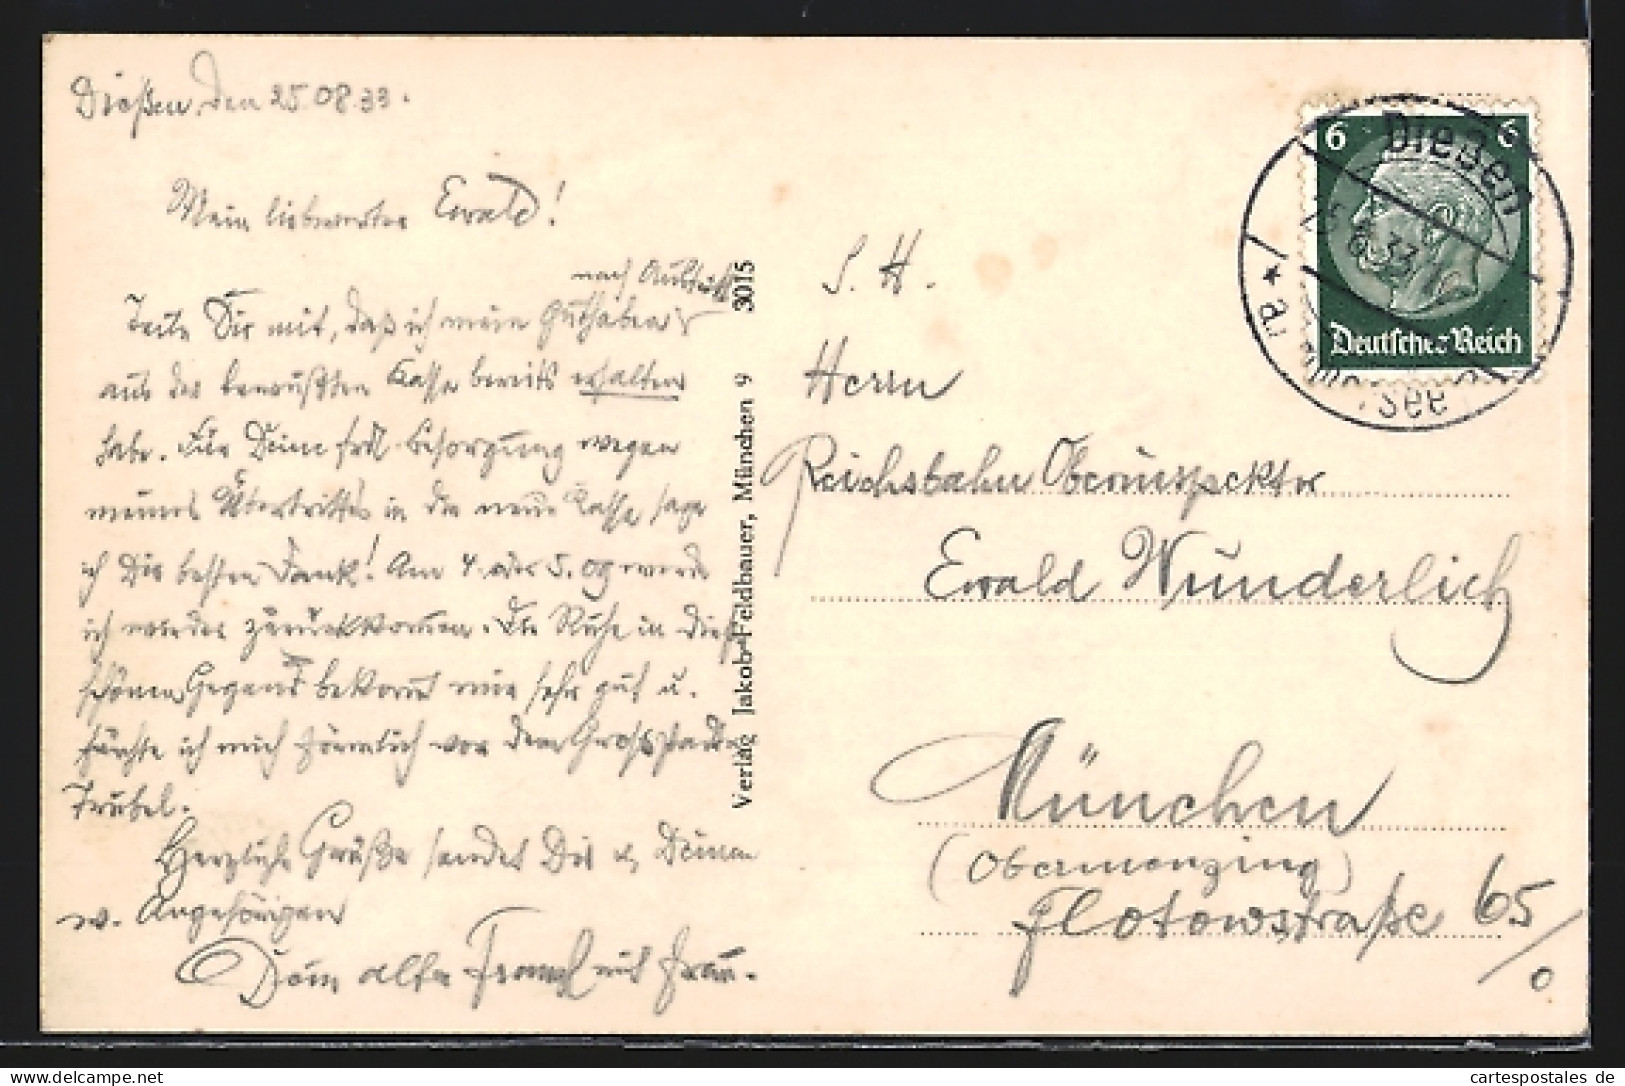 Dießen, den 25.08.33.
Mein liebwerter Ewald!
nach Austritt
Teile Dir mit, daß ich mein Guthaben
aus der bewußten Kasse bereits erhalten
habe. Für Deine frdl. Besorgung wegen
meines Übertrittes in die neue Kasse sage
ich Dir besten Dank! Am 4. oder 5.09 werde
ich wieder zurückkommen. Die Ruhe in dieser
schönen Gegend bekommt mir sehr gut u.
fürchte ich mich förmlich vor dem Großstadt
Trubel.
Herzliche Grüße sendet Dir u. Deinen
w. Angehörigen
Dein alter Freund mit Frau.
Verlag Jakob Feldbauer, München 9 3015
6 6
Deutsches Reich
Dießen
25.8.33
see
S. H.
Herrn
Reichsbahn Oberinspektor
Ewald Wunderlich
München
(Obermenzing)
Flotowstraße 65/0
delcampe.net
cartespostales de